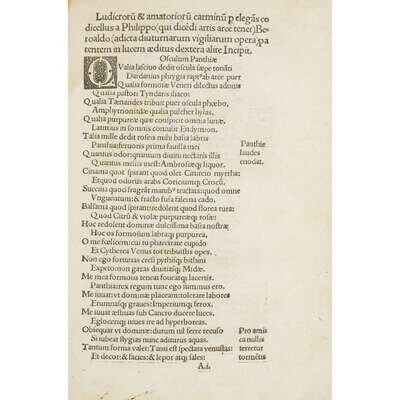 Ludicrorũ & amatoriorũ carminũ p elegãs co
dicellus a Philippo (qui dicẽdi artis arcẽ tenet) Be-
roaldo (adiecta diuturnarum vigiliarum opera) pa
tentem in lucem æditus dextera alite Incipit.
Osculum Panthiæ
Qualia lasciuo dedit oscula sæpe tonãti
Dardanius phrygia rapt9 ab arce puer
Qualia formosæ Veneri dilectus adonis
Qualia pastori Tyndaris iliaco:
Qualia Tænarides tribuit puer oscula phœbo,
Amphytrioniadæ qualia pulcher hylas.
Qualia purpureæ quæ conspicit omnia lunæ,
Latmius in somnis contulit Endymion.
Talia mille dedit roseis mihi basia labris
Panthia feruoris prima fauilla mei
Quantus odor: quantum diuini nectaris illis
Quantus mellis inest: Ambrosiæq; liquor.
Cinama quot spirant quod olet Canceo myrrha:
Et quod odorus arabs Coriciumq; Crocũ.
Succina quod fragrãt manub9 tractata: quod omne
Vnguentatum: & fracto fusa falerna cado.
Balsama quod spirant: redolent quod florea rura:
Quod Citrũ & violæ purpureæq; rosæ:
Hoc redolent dominæ dulcissima basia nostræ
Hoc os formosum labraq; purpurea.
O me fœlicem: cui tu pharetrate cupido
Et Cytherea Venus tot tribuistis opes.
Non ego fortunas cresi pyrhiq; bithini
Expetomon gazas diuitiasq; Midæ.
Me mea formosa teneat foueatq; lacertis.
Panthia: rex regum tunc ego summus ero.
Me iuuat vt dominæ placeam: tolerare labores
Erumnasq; graues: Imperiumq; ferox.
Me iuuat æstiuas sub Cancro ducere luces.
Egloceriq; niues ire ad hyperboreas.
Obsequar vt dominæ: durum nil ferre recuso
Si iubeat stygias nunc aditurus aquas.
Tantum forma valet: Tanti est spectata venustas:
Et decor: & facies: & lepor atq; sales:
Panthiæ
laudes
enodat.
Pro amis
ca nullis
terretur
tormẽtis
A.ii.